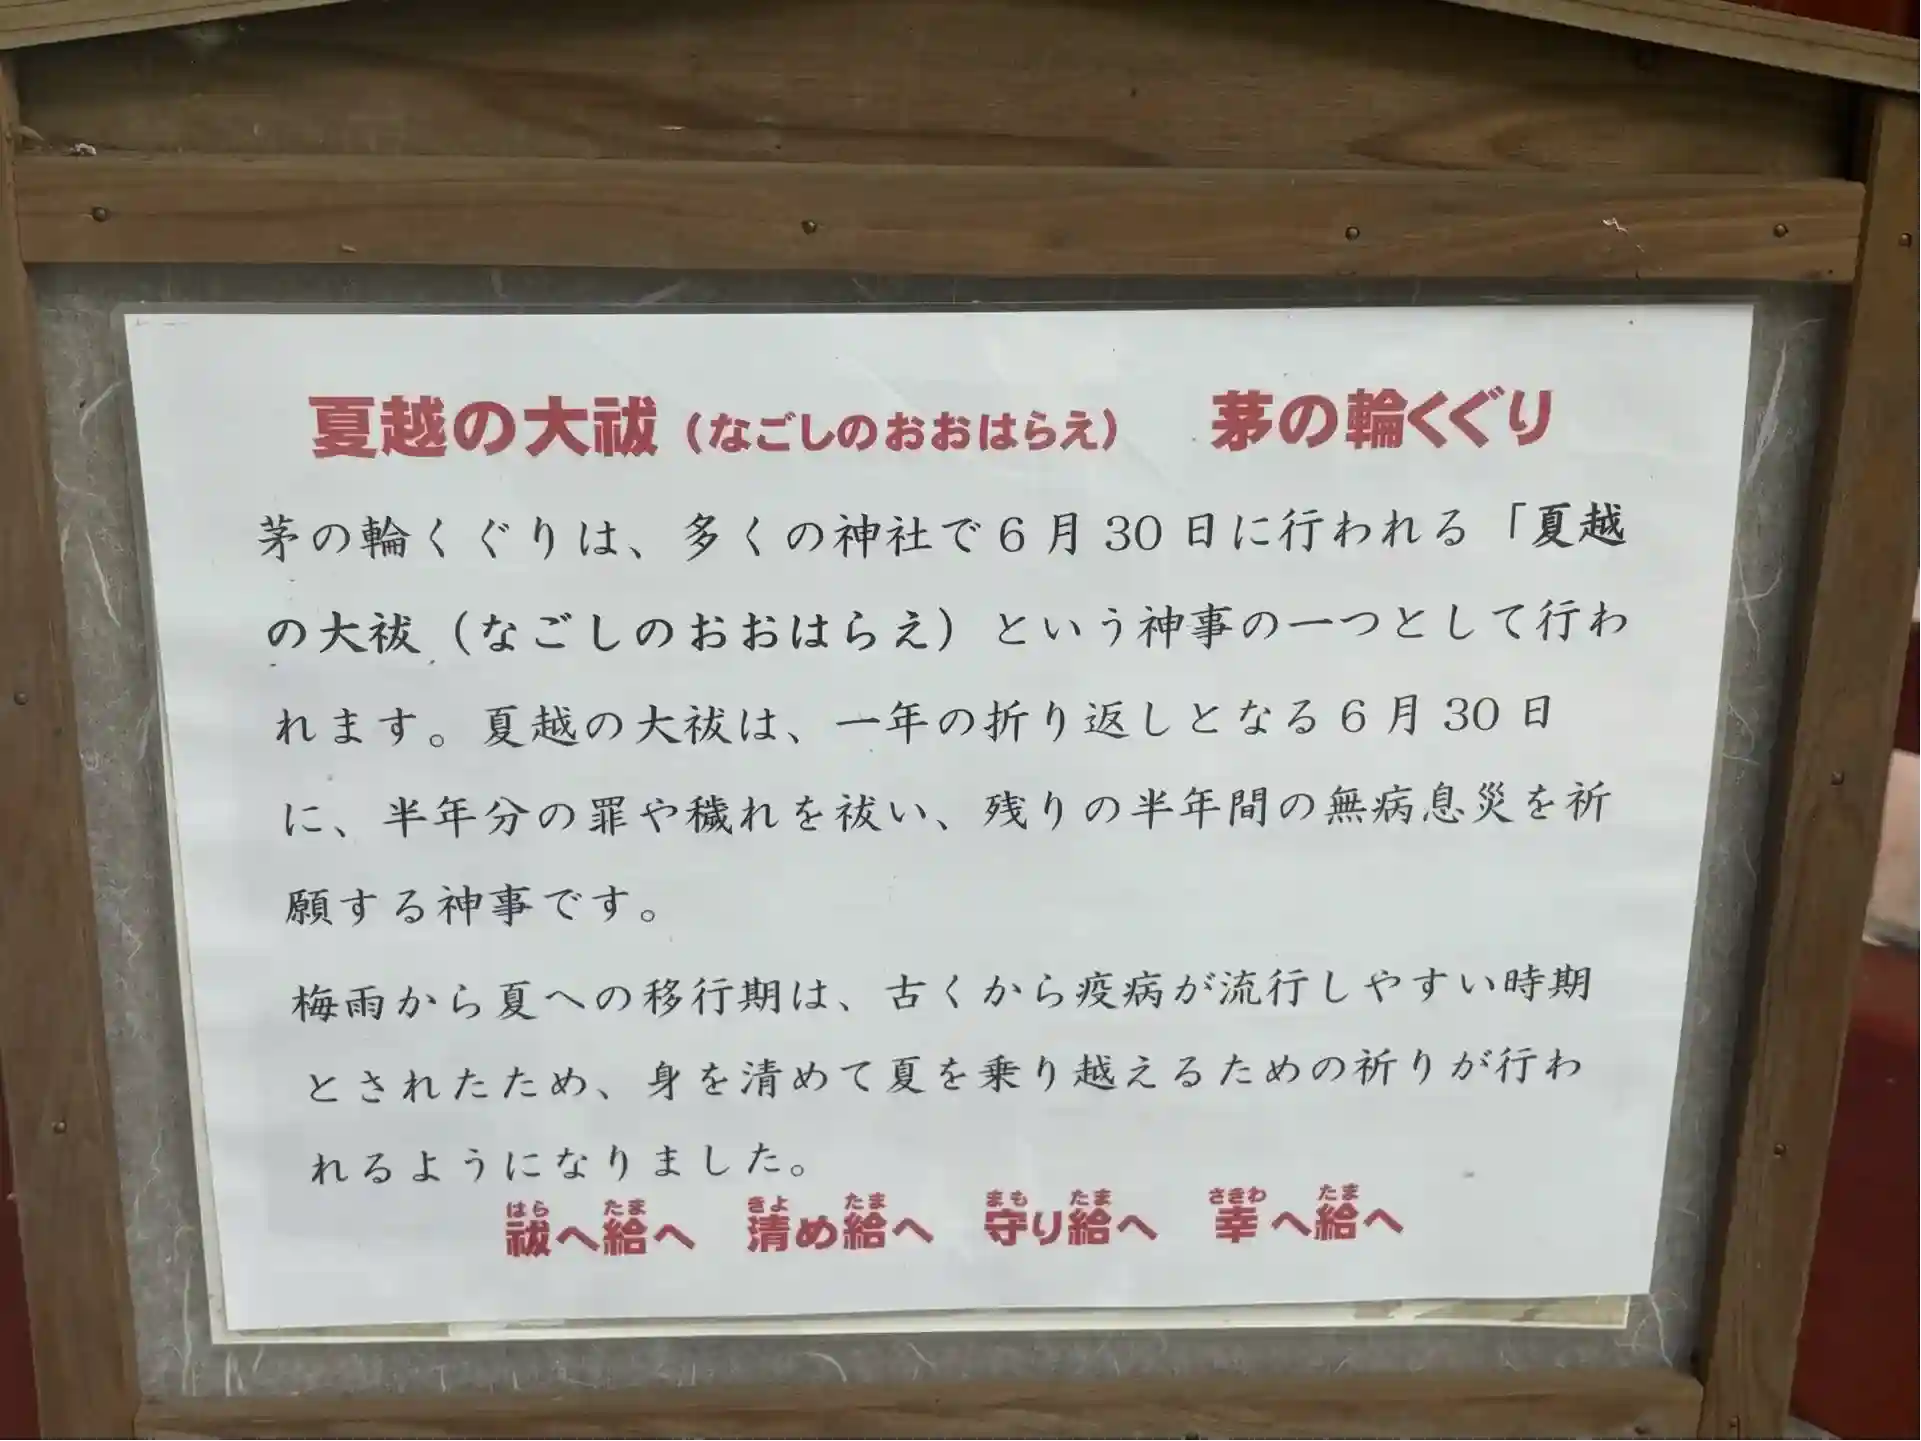 夏越の大祓（なごしのおおはらえ）　茅の輪くぐり
茅の輪くぐりは、多くの神社で6月30日に行われる「夏越
の大祓（なごしのおおはらえ）という神事の一つとして行わ
れます。夏越の大祓は、一年の折り返しとなる6月30日
に、半年分の罪や穢れを祓い、残りの半年間の無病息災を祈
願する神事です。
梅雨から夏への移行期は、古くから疫病が流行しやすい時期
とされたため、身を清めて夏を乗り越えるための祈りが行わ
れるようになりました。
はら　たま　きよ　たま　まも　たま　さきわ　たま
祓へ給へ　清め給へ　守り給へ　幸へ給へ